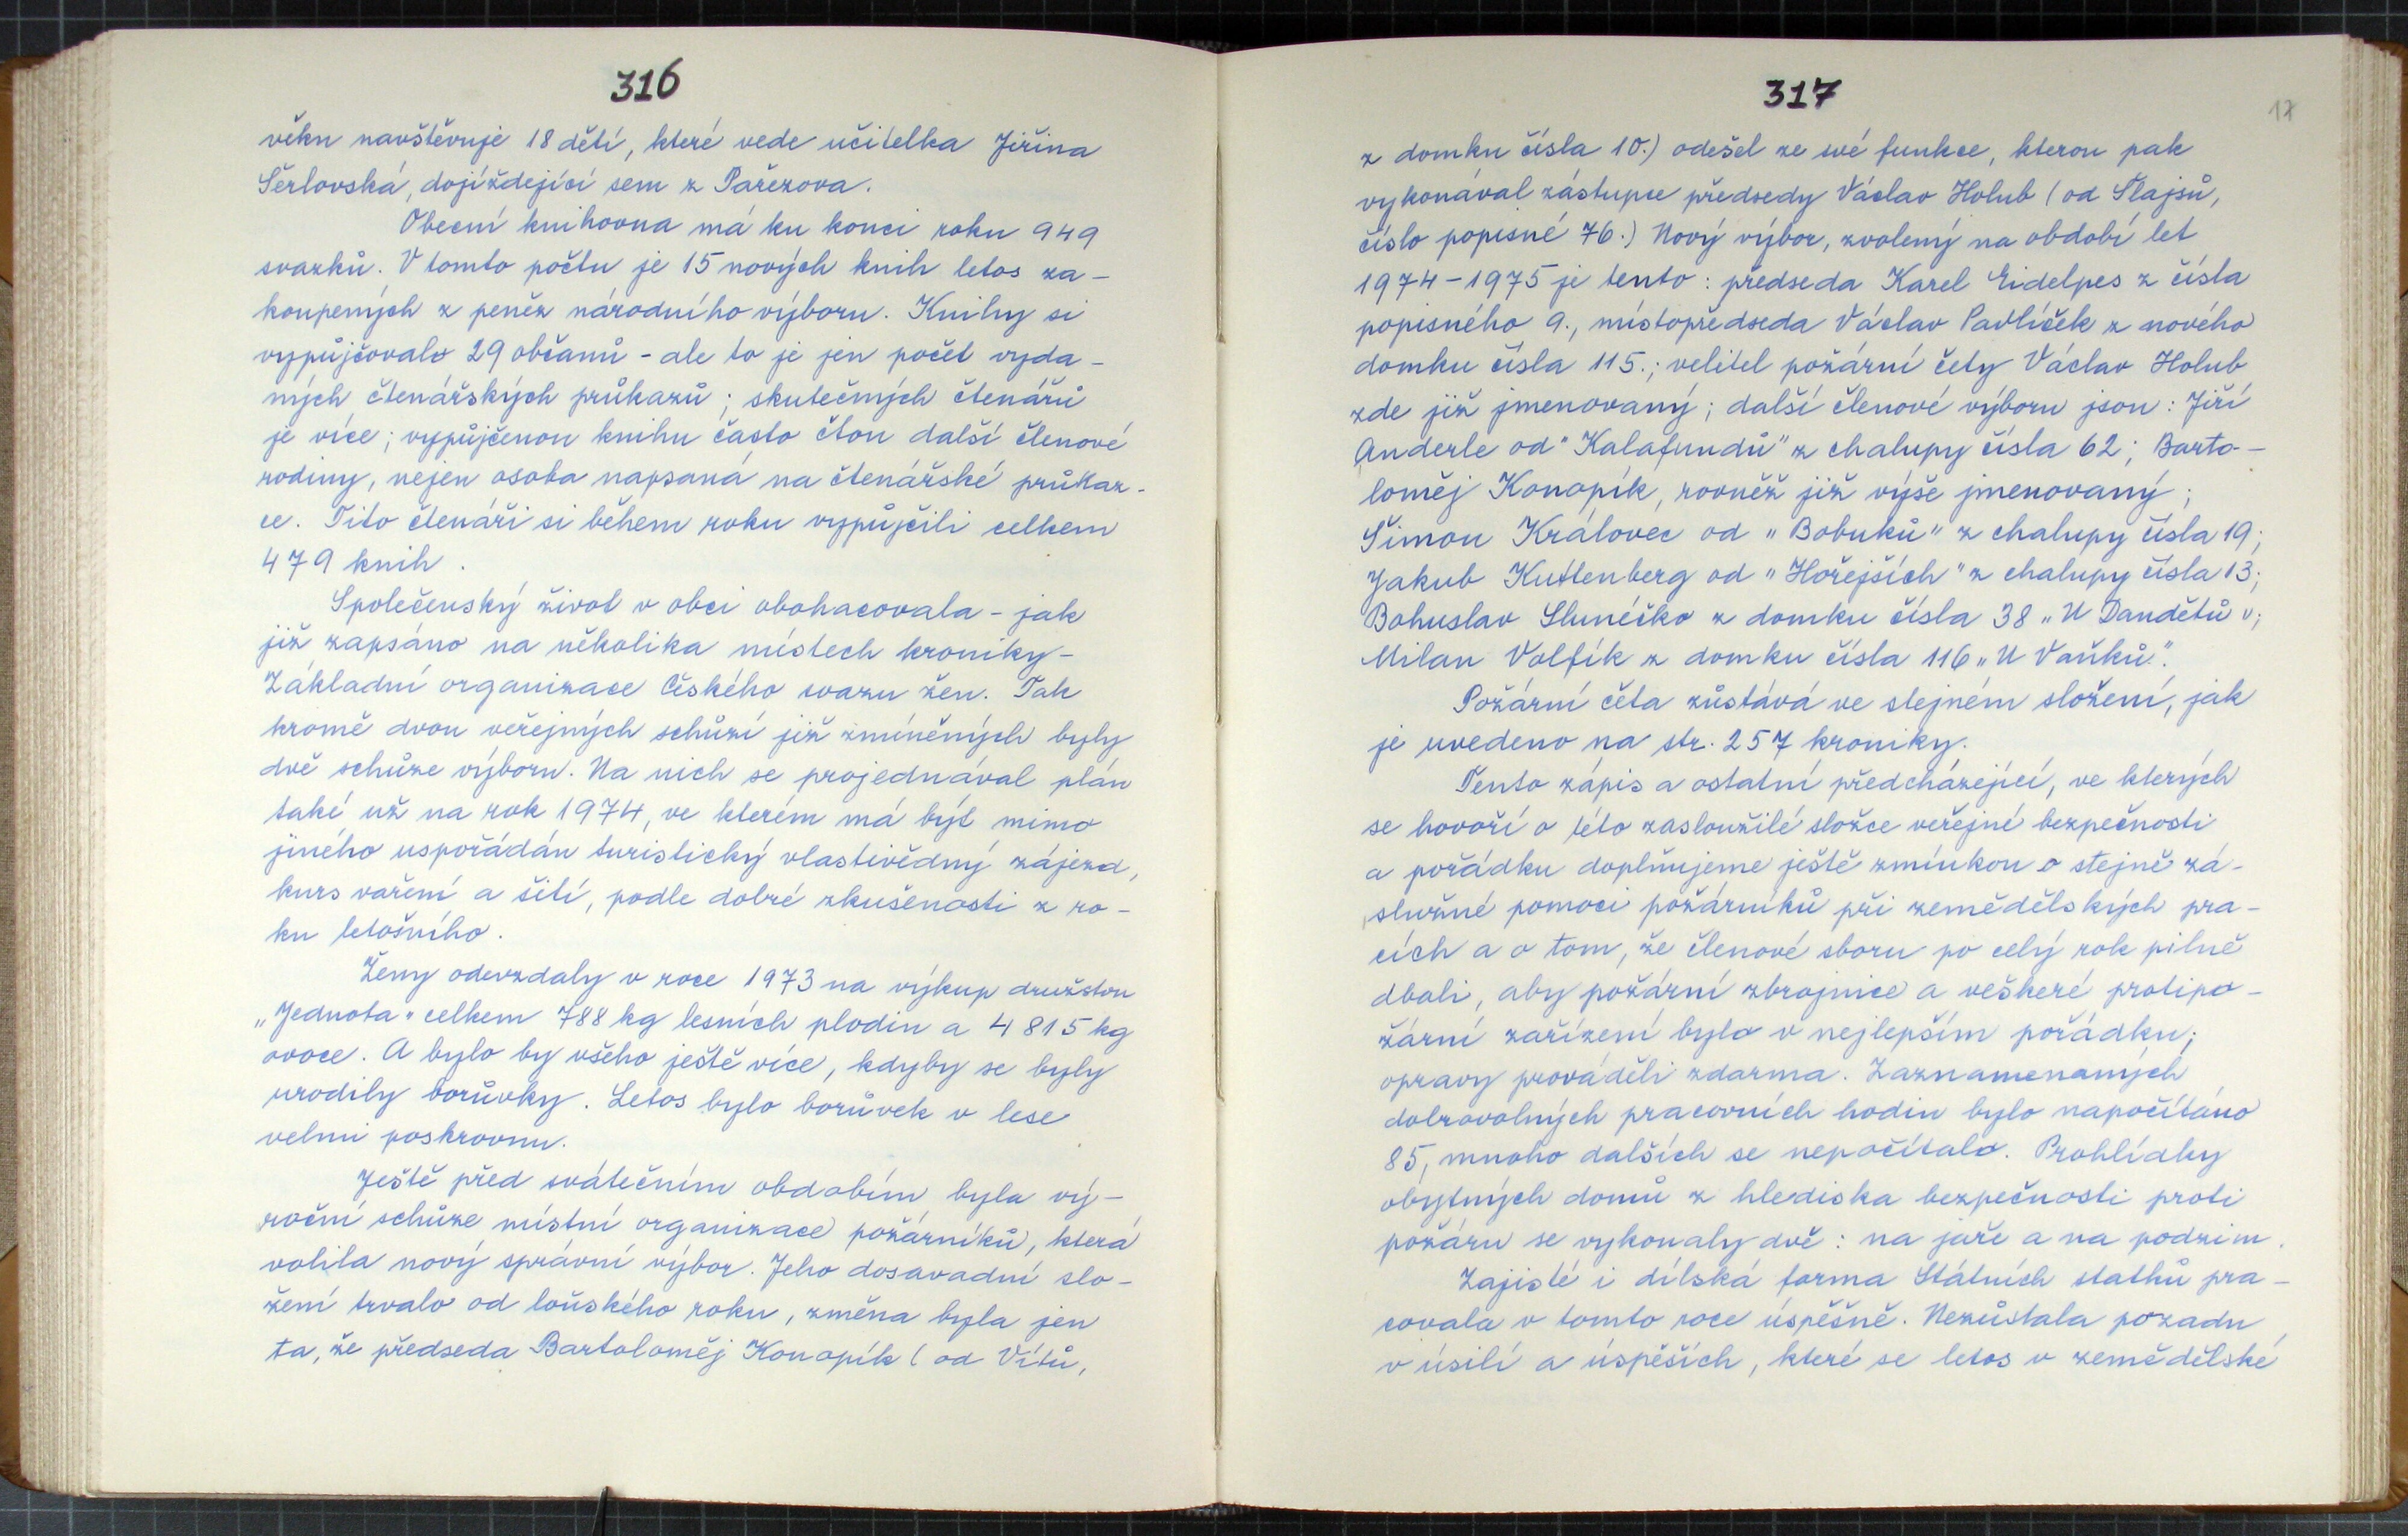 316
věku navštěvuje 18 dětí, které vede učitelka Jiřina
Šerlovská, dojíždějící sem z Pařezova.
Obecní knihovna má ku konci roku 949
svazků. V tomto počtu je 15 nových knih letos za-
koupených z peněz národního výboru. Knihy si
vypůjčovalo 29 občanů - ale to je jen počet vyda-
ných čtenářských průkazů; skutečných čtenářů
je více; vypůjčenou knihu často čtou další členové
rodiny, nejen osoba napsaná na čtenářské průkaz-
ce. Tito čtenáři si během roku vypůjčili celkem
479 knih.
Společenský život v obci obohacovala - jak
již zapsáno na několika místech kroniky -
Základní organizace Českého svazu žen. Tak
kromě dvou veřejných schůzí již zmíněných byly
dvě schůze výboru. Na nich se projednával plán
také už na rok 1974, ve kterém má být mimo
jiného uspořádán turistický vlastivědný zájezd,
kurs vaření a šití, podle dobré zkušenosti z ro-
ku letošního.
Ženy odevzdaly v roce 1973 na výkup družstvu
„Jednota" celkem 788 kg lesních plodin a 4 815 kg
ovoce. A bylo by všeho ještě více, kdyby se byly
urodily borůvky. Letos bylo borůvek v lese
velmi poskrovnu.
Ještě před svátečním obdobím byla vý-
roční schůze místní organizace požárníků, která
volila nový správní výbor. Jeho dosavadní slo-
žení trvalo od loňského roku, změna byla jen
ta, že předseda Bartoloměj Konopík (od Vítů,
317
17
z domku čísla 10.) odešel ze své funkce, kterou pak
vykonával zástupce předsedy Václav Holub (od Šlajsů,
číslo popisné 76.) Nový výbor, zvolený na období let
1974-1975 je tento: předseda Karel Eidelpes z čísla
popisného 9., místopředseda Václav Pavlíček z nového
domku čísla 115.; velitel požární čety Václav Holub
zde již jmenovaný; další členové výboru jsou: Jiří
Anderle od "Kalafundů" z chalupy čísla 62; Barto-
loměj Konopík, rovněž již výše jmenovaný;
Šimon Královec od „Bobuků" z chalupy čísla 19;
Jakub Kuttenberg od „Hořejších" z chalupy čísla 13;
Bohuslav Slunéčko z domku čísla 38 „U Dandětů";
Milan Volfík z domku čísla 116 „U Vaňků".
Požární četa zůstává ve stejném složení, jak
je uvedeno na str. 257 kroniky.
Tento zápis a ostatní předcházející, ve kterých
se hovoří o této zasloužilé složce veřejné bezpečnosti
a pořádku doplňujeme ještě zmínkou o stejně zá-
služné pomoci požárníků při zemědělských pra-
cích a o tom, že členové sboru po celý rok pilně
dbali, aby požární zbrojnice a veškeré protipo-
žární zařízení bylo v nejlepším pořádku;
opravy prováděli zdarma. Zaznamenaných
dobrovolných pracovních hodin bylo napočítáno
85, mnoho dalších se nepočítalo. Prohlídky
obytných domů z hlediska bezpečnosti proti
požáru se vykonaly dvě: na jaře a na podzim.
Zajisté i dílská farma Státních statků pra-
covala v tomto roce úspěšně. Nezůstala pozadu
v úsilí a úspěších, které se letos v zemědělské